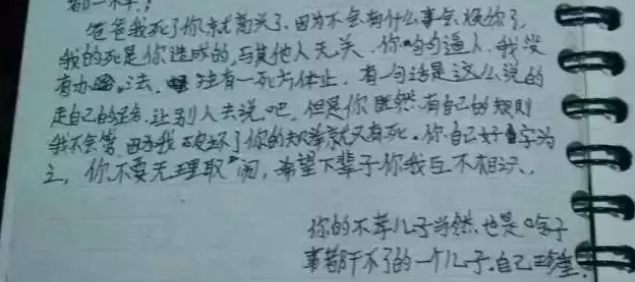 都一不孝！
爸爸我死了你就高兴了，因为不会有什么事会烦你了，
我的死是你造成的，与其他人无关，你咄咄逼人，我没
有办法，独有一死方休止，有一句话是这么说的
走自己的路，让别人去说吧，但是你既然有自己的规则
我不会管，因为我破坏了你的规则就又有死。你自己好自为
之，你不要无理取闹，希望下辈子你我互不相识。
你的不孝儿子当然也是啥子
事都干不了的一个儿子。自己